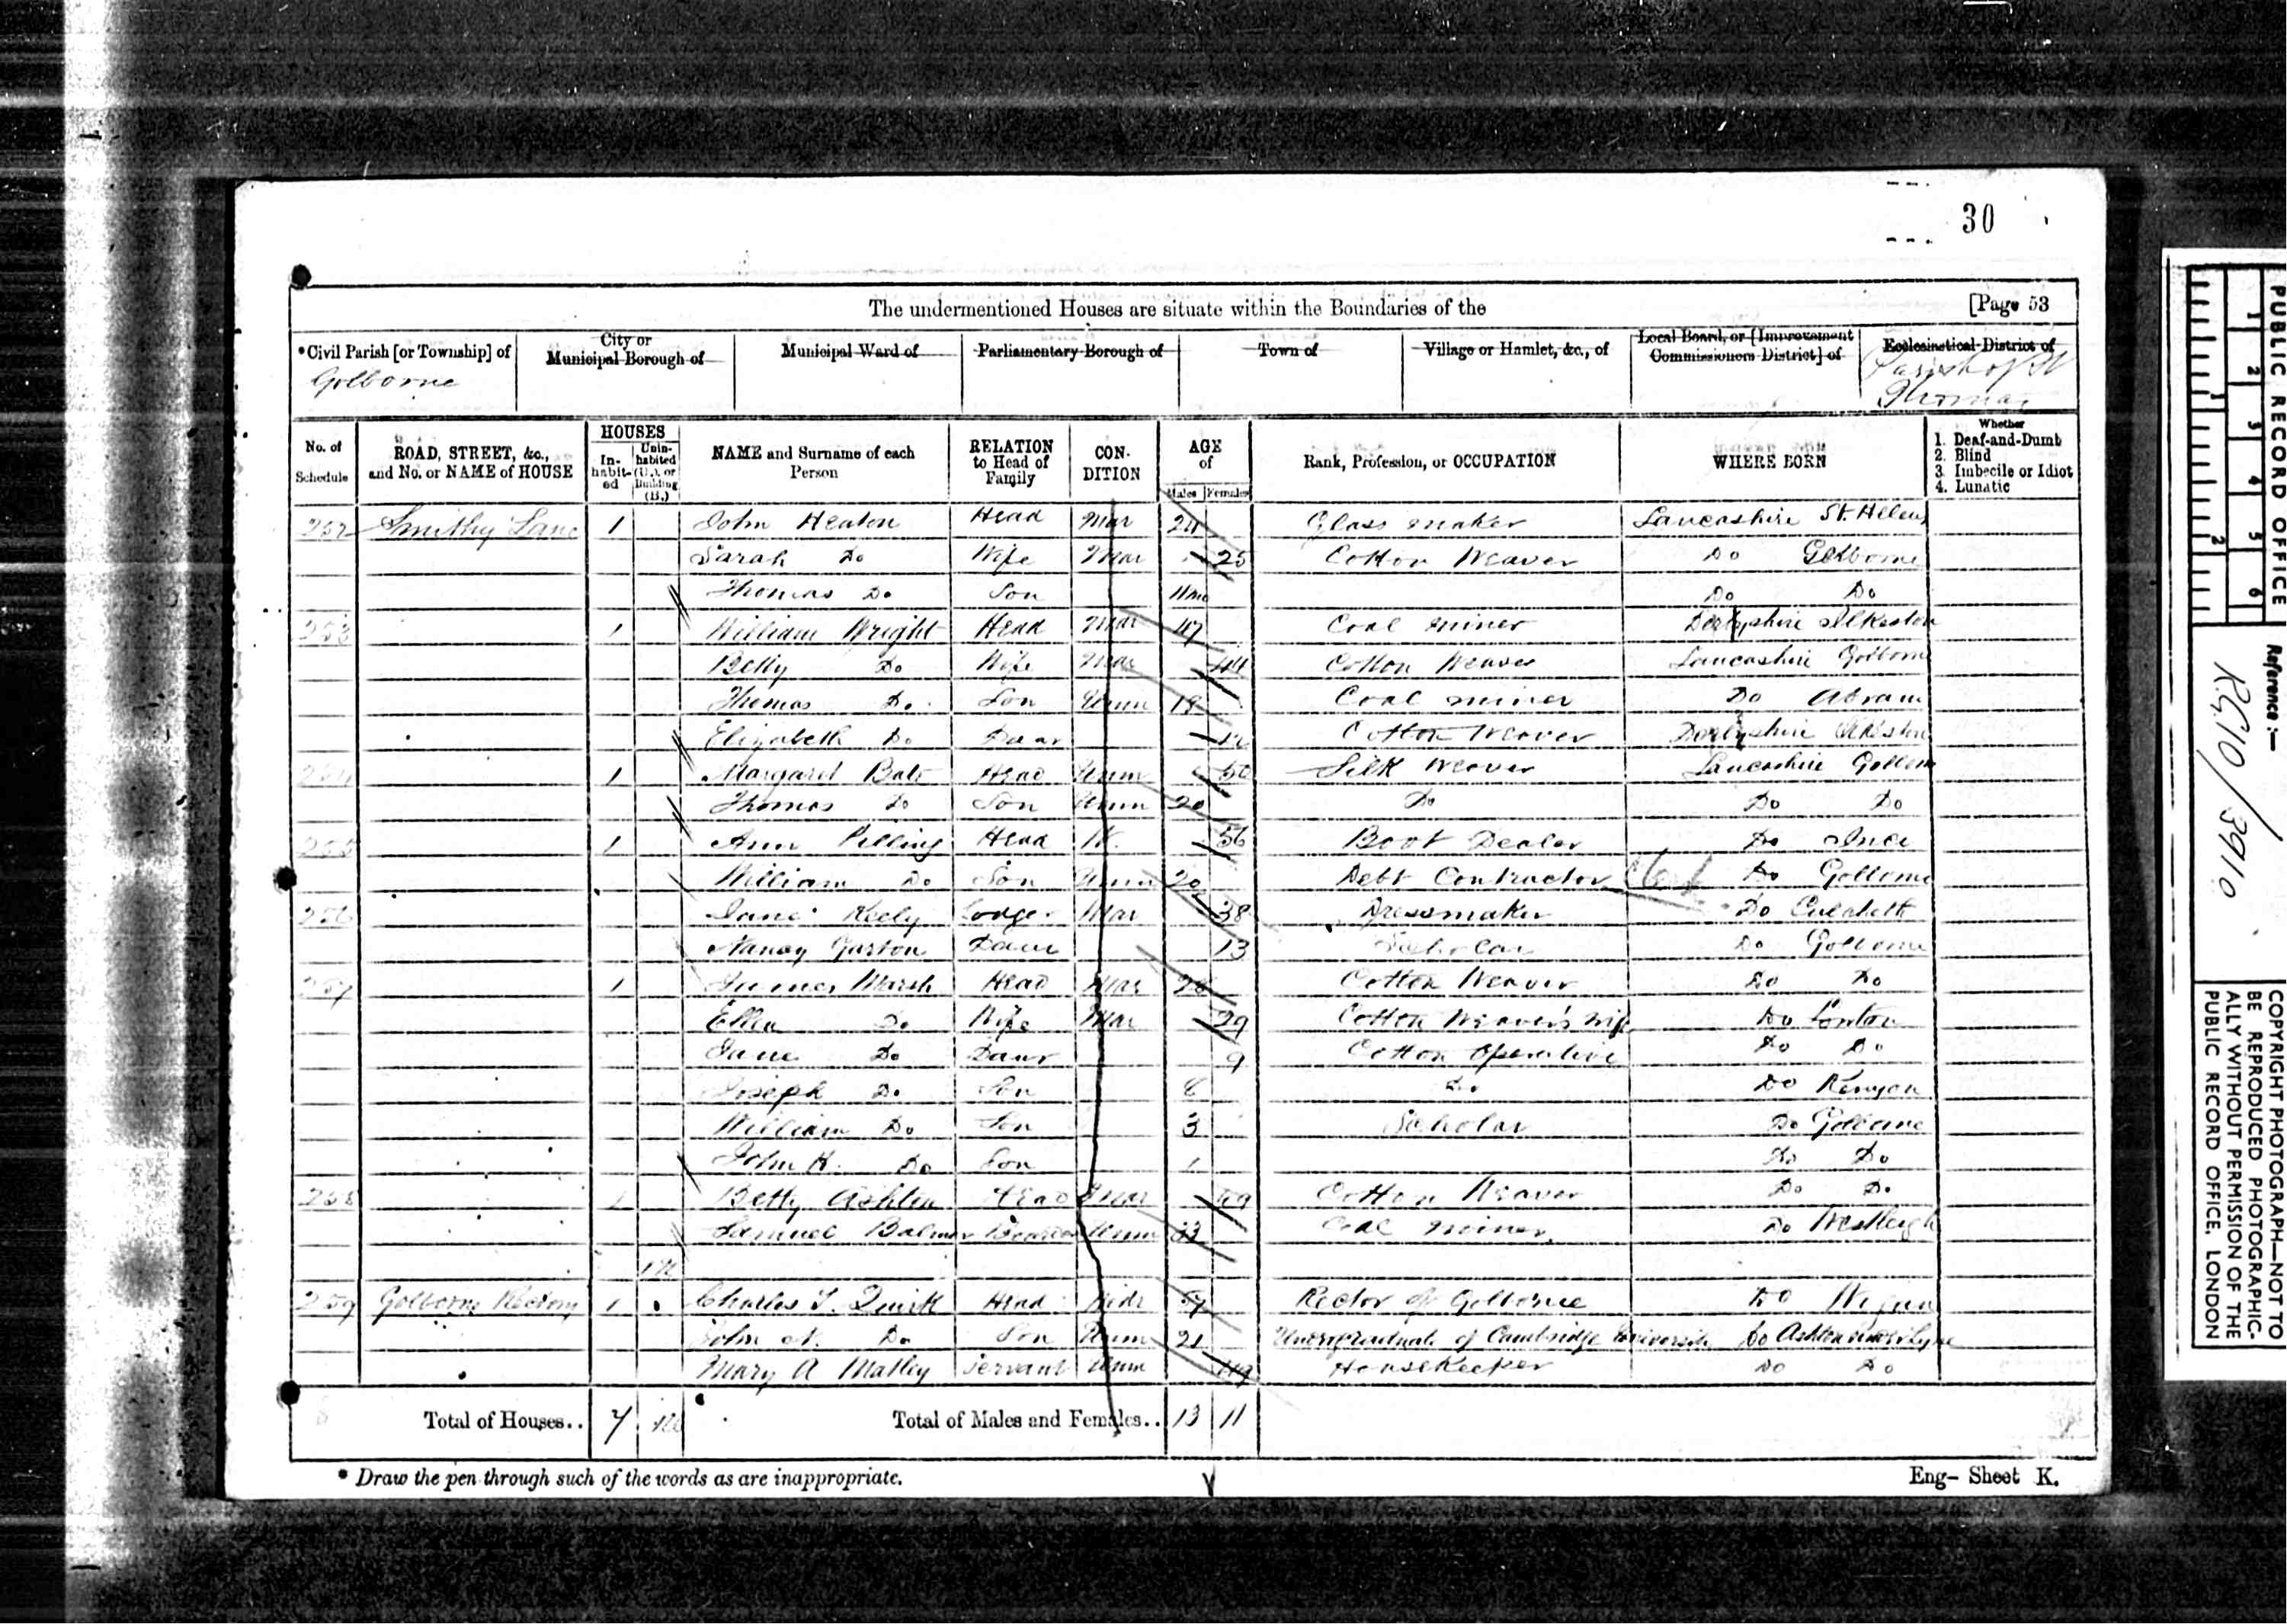 30
The undermentioned Houses are situate within the Boundaries of the [Page 53
*Civil Parish [or Township] of City or Municipal Borough of Municipal Ward of Parliamentary Borough of Town of Village or Hamlet, &c., of Local Board, or [Improvement Commissioners District] of Ecclesiastical District of
Golborne Parish of St Thomas
No. of Schedule ROAD, STREET, &c., and No. or NAME of HOUSE HOUSES In-habit-ed Unin-habited (U.), or Building (B.) NAME and Surname of each Person RELATION to Head of Family CON-DITION AGE of Males Females Rank, Profession, or OCCUPATION WHERE BORN Whether 1. Deaf-and-Dumb 2. Blind 3. Imbecile or Idiot 4. Lunatic
252 Smithy Lane 1 John Heaton Head Mar 24 Glass maker Lancashire St. Helens
Sarah Do Wife Mar 25 Cotton Weaver Do Golborne
Thomas Do Son 11mo Do Do
253 1 William Wright Head Mar 47 Coal miner Derbyshire Ilkeston
Betty Do Wife Mar 44 Cotton Weaver Lancashire Golborne
Thomas Do Son Unm Coal miner Do Abram
Elizabeth Do Daur 12 Cotton Weaver Derbyshire
254 1 Margaret Bate Head Unm 50 Silk Weaver Lancashire Golborne
Thomas Do Son Unm 20 Do Do Do
255 1 Ann Pilling Head W. 56 Boot Dealer Do Ince
William Do Son Unm 20 Debt Contractor Do Golborne
256 Jane Keely Lodger Mar 38 Dressmaker Do Culcheth
Nancy Daur 13 Scholar Do Golborne
257 1 Marsh Head Mar 28 Cotton Weaver Do Do
Ellen Do Wife Mar 29 Cotton Weaver's wife Do
Jane Do Daur 9 Cotton Operative Do Do
Joseph Do Son 8 Do Do Kenyon
William Do Son 3 Scholar Do Golborne
John H. Do Son 1 Do Do
258 1 Betty Ashton Head 69 Cotton Weaver Do Do
Samuel Balmer Boarder Unm 33 Coal miner Do Westleigh
259 Golborne Rectory 1 Charles T. Quirk Head Widr 57 Rector of Golborne Do Wigan
John N. Do Son Unm 21 Undergraduate of Cambridge University Do Ashton under Lyne
Mary A Matley Servant Unm 49 HouseKeeper Do Do
Total of Houses.. 7 Total of Males and Females.. 13 11
* Draw the pen through such of the words as are inappropriate. Eng- Sheet K.
PUBLIC RECORD OFFICE
1 2 3 4 5 6
1 2
Reference :-
RG10/3910
COPYRIGHT PHOTOGRAPH—NOT TO
BE REPRODUCED PHOTOGRAPHIC-
ALLY WITHOUT PERMISSION OF THE
PUBLIC RECORD OFFICE, LONDON